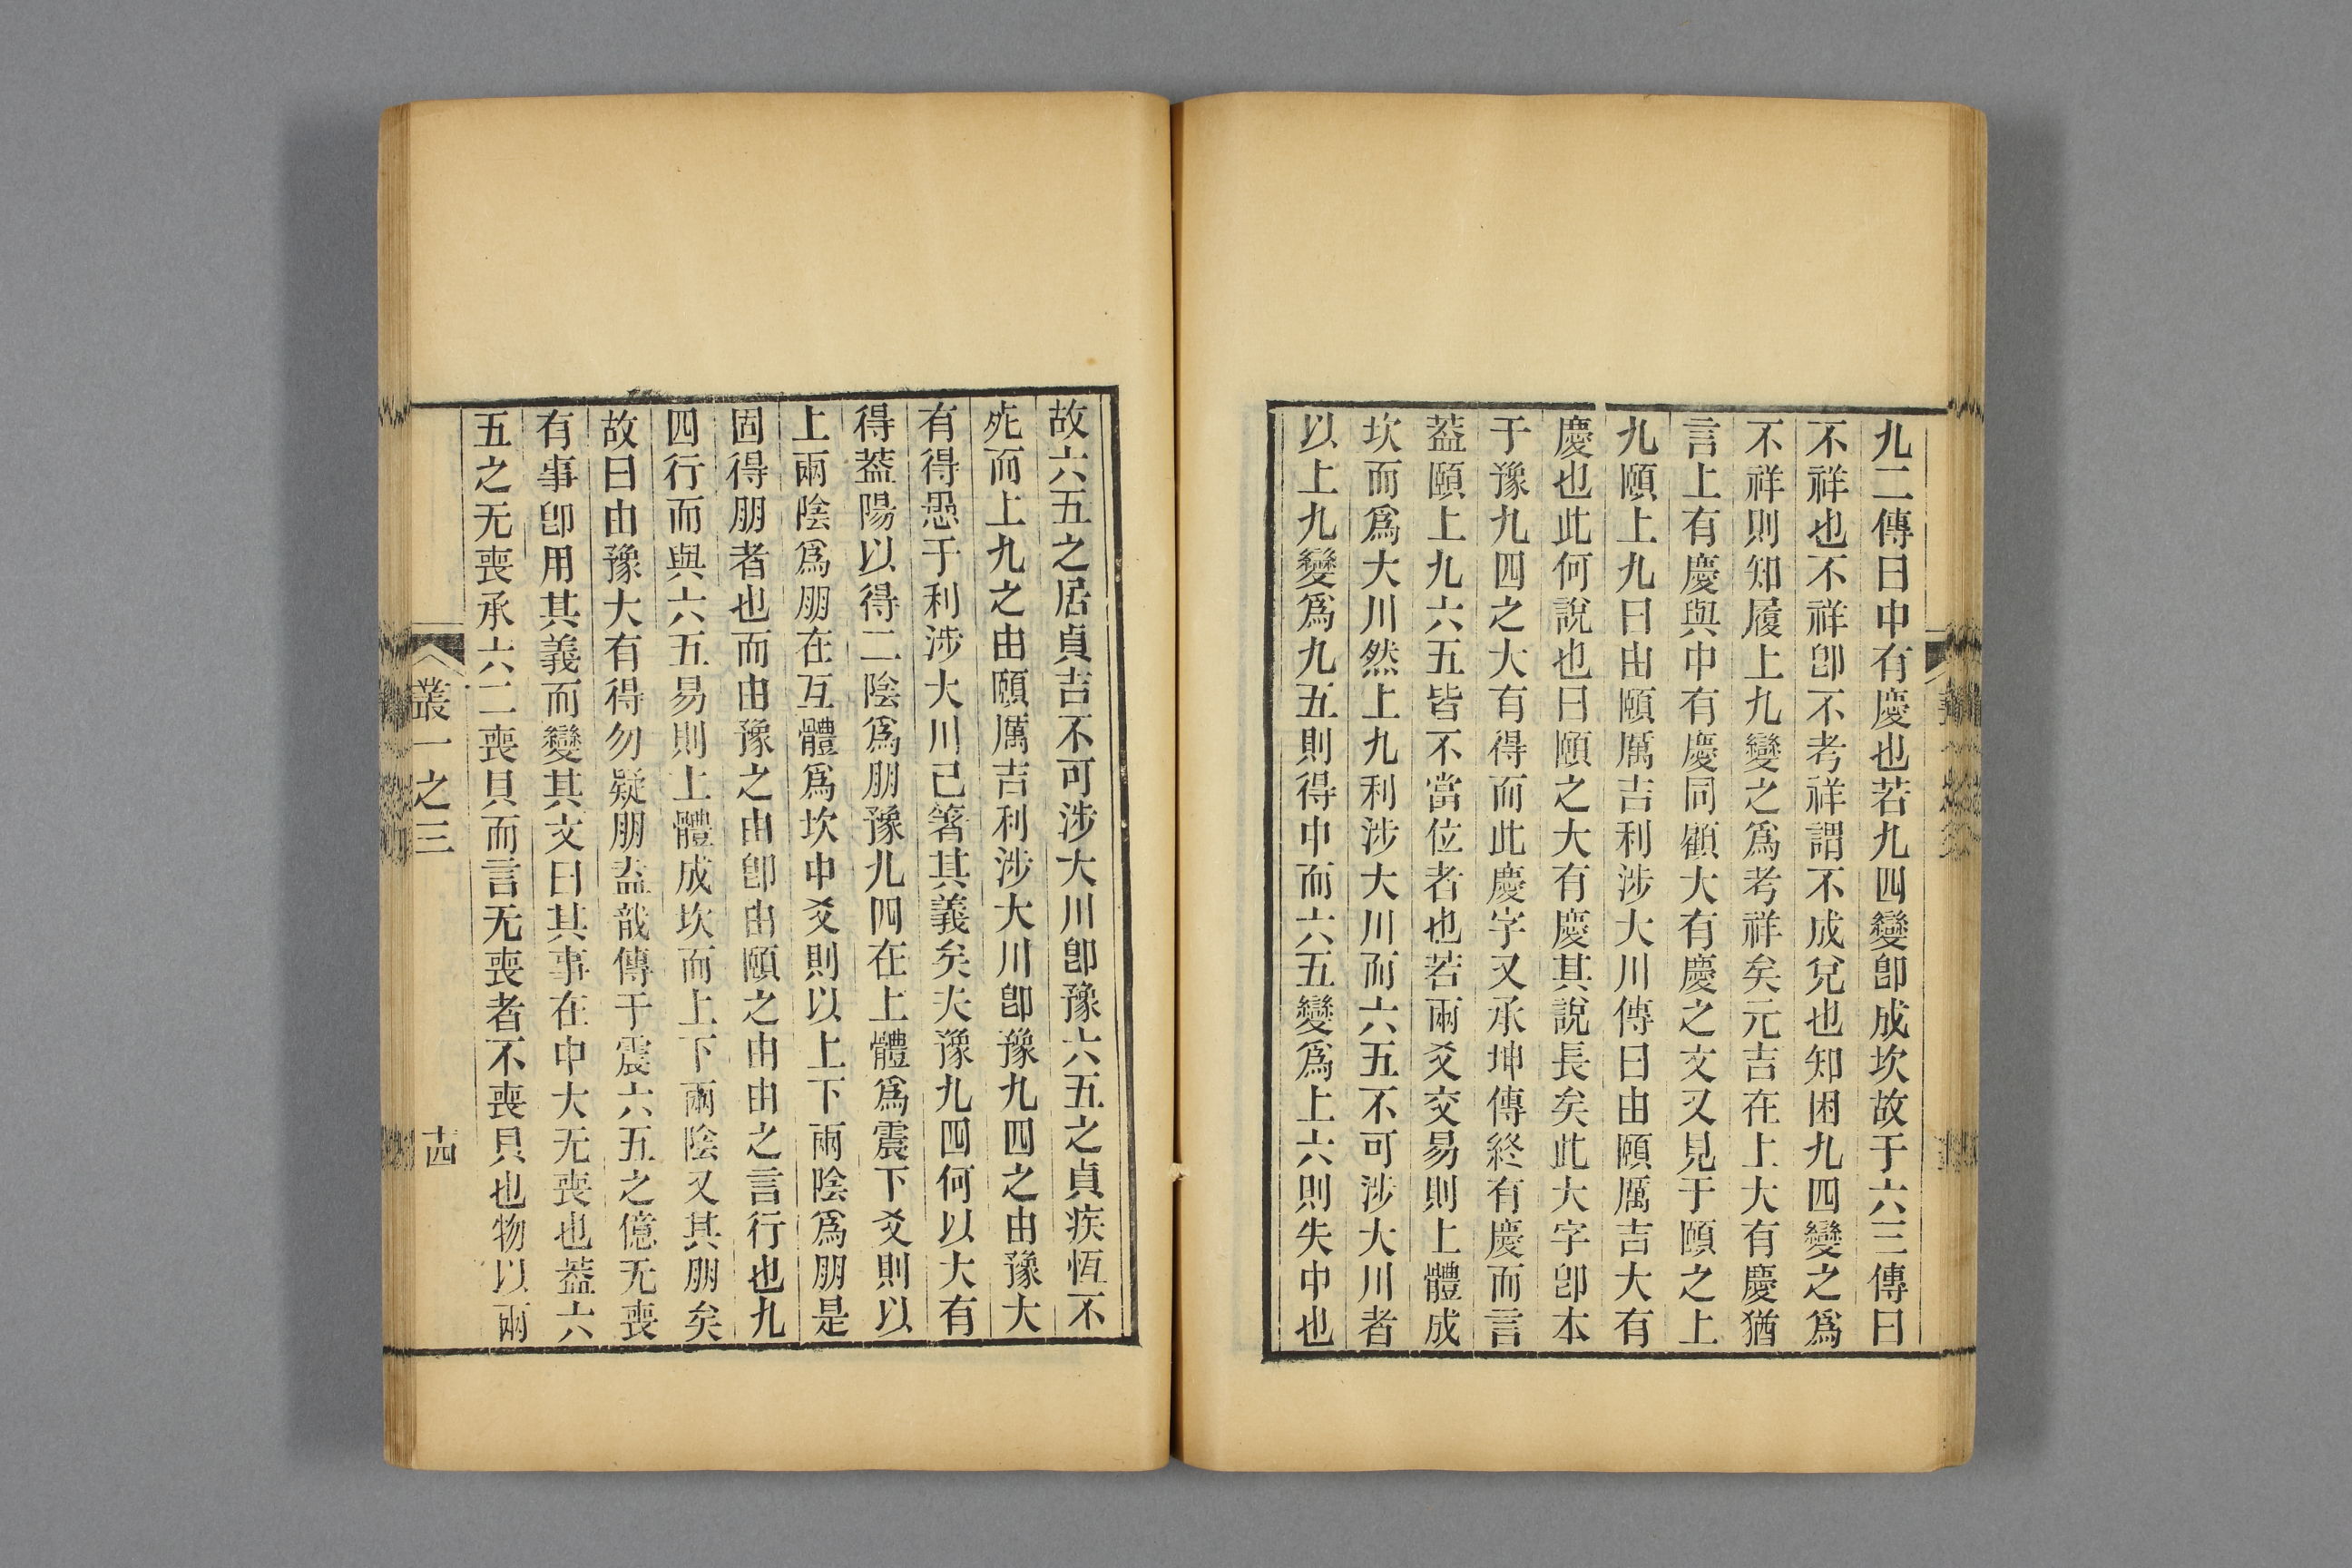 九二傳曰中有慶也若九四變卽成坎故于六三傳曰
不祥也不祥卽不考祥謂不成兌也知困九四變之爲
不祥則知履上九變之爲考祥矣元吉在上大有慶猶
言上有慶與中有慶同顧大有慶之文又見于頤之上
九頤上九曰由頤厲吉利涉大川傳曰由頤厲吉大有
慶也此何說也曰頤之大有慶其說長矣此大字卽本
于豫九四之大有得而此慶字又承坤傳終有慶而言
葢頤上九六五皆不當位者也若兩爻交易則上體成
坎而爲大川然上九利涉大川而六五不可涉大川者
以上九變爲九五則得中而六五變爲上六則失中也
故六五之居貞吉不可涉大川卽豫六五之貞疾恆不
死而上九之由頤厲吉利涉大川卽豫九四之由豫大
有得愚于利涉大川己箸其義矣夫豫九四何以大有
得葢陽以得二陰爲朋豫九四在上體爲震下爻則以
上兩陰爲朋在互體爲坎中爻則以上下兩陰爲朋是
固得朋者也而由豫之由卽由頤之由由之言行也九
四行而與六五易則上體成坎而上下兩陰又其朋矣
故曰由豫大有得勿疑朋盍戠傳于震六五之億无喪
有事卽用其義而變其文曰其事在中大无喪也葢六
五之无喪承六二喪貝而言无喪者不喪貝也物以兩
叢一之三
十四